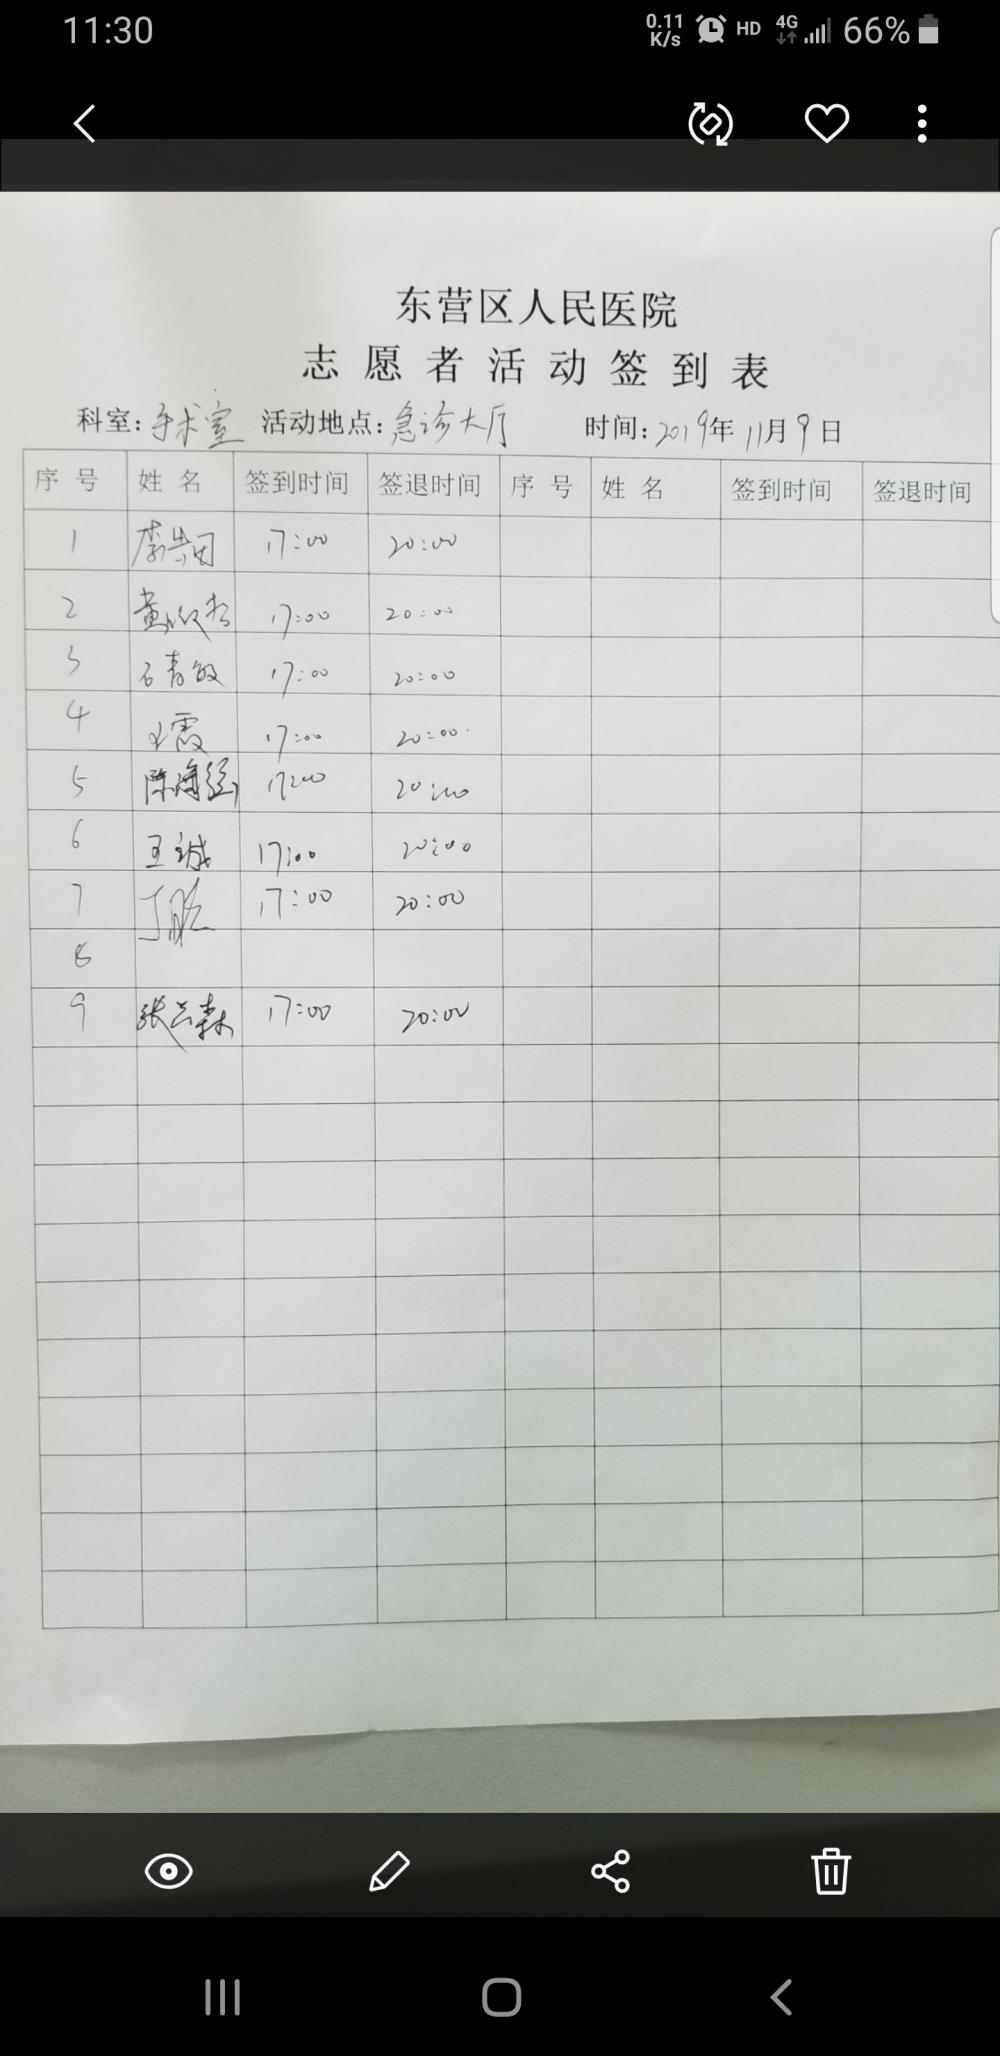 11:30 0.11 K/s HD 4G 66%
东营区人民医院
志愿者活动签到表
科室:手术室 活动地点:急诊大厅 时间:2019年11月9日
序号 姓名 签到时间 签退时间 序号 姓名 签到时间 签退时间
1 17:00 20:00
2 17:00 20:00
3 石青敏 17:00 20:00
4 王霞 17:00 20:00
5 陈海 17:00 20:00
6 王诚 17:00 20:00
7 丁 17:00 20:00
8
9 张云森 17:00 20:00